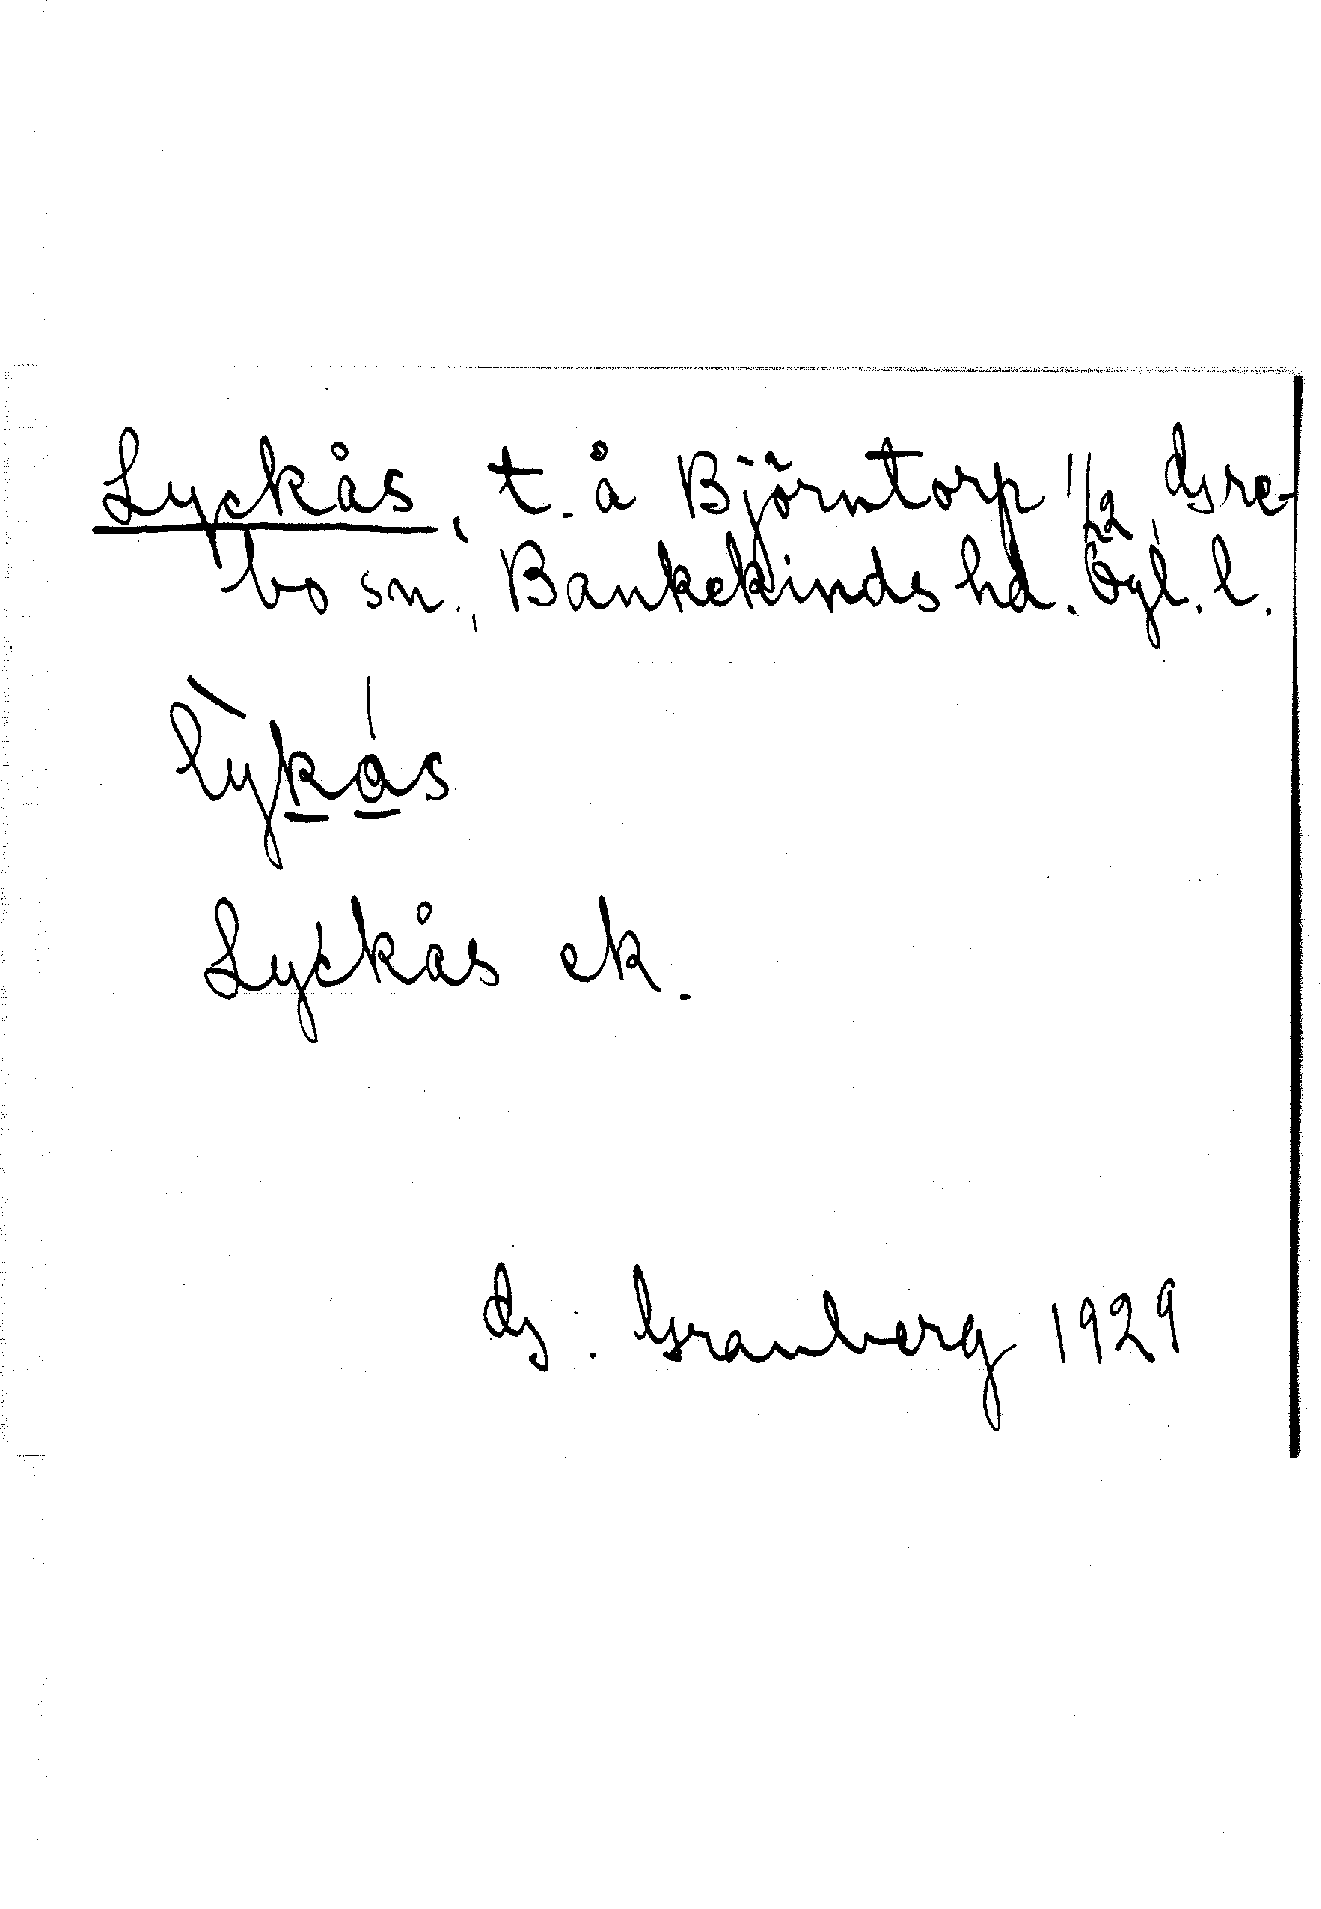 Lyckås, t. å Björntorp 1/2, Gre-
bo sn., Bankekinds hd. Ögl. l.
lỳkás
Lyckås ek.
G. Granberg 1929